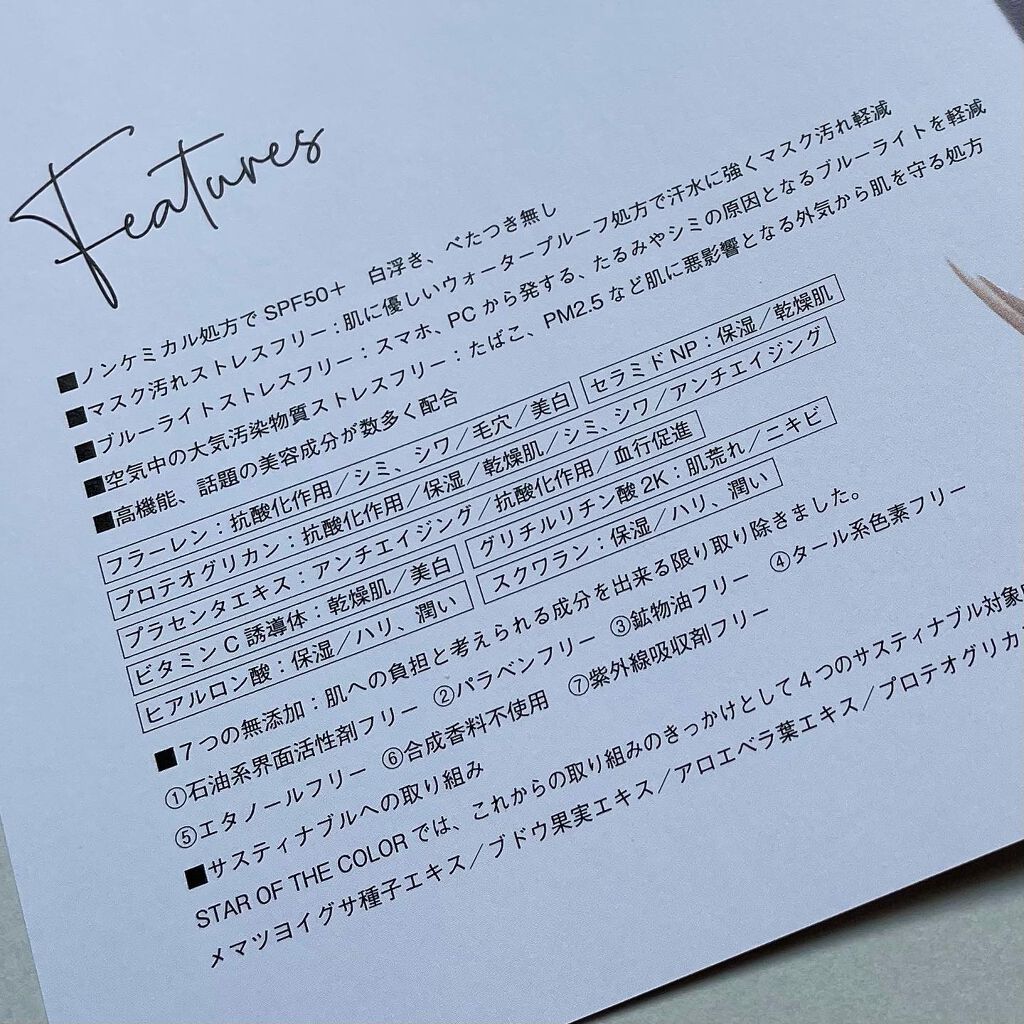 Features
■ノンケミカル処方で SPF50＋　白浮き、べたつき無し
■マスク汚れストレスフリー：肌に優しいウォータープルーフ処方で汗水に強くマスク汚れ軽減
■ブルーライトストレスフリー：スマホ、PC から発する、たるみやシミの原因となるブルーライトを軽減
■空気中の大気汚染物質ストレスフリー：たばこ、PM2.5 など肌に悪影響となる外気から肌を守る処方
■高機能、話題の美容成分が数多く配合
フラーレン：抗酸化作用／シミ、シワ／毛穴／美白　セラミド NP：保湿／乾燥肌
プロテオグリカン：抗酸化作用／保湿／乾燥肌／シミ、シワ／アンチエイジング
プラセンタエキス：アンチエイジング／抗酸化作用／血行促進
ビタミン C 誘導体：乾燥肌／美白　グリチルリチン酸 2K：肌荒れ／ニキビ
ヒアルロン酸：保湿／ハリ、潤い　スクワラン：保湿／ハリ、潤い
■７つの無添加：肌への負担と考えられる成分を出来る限り取り除きました。
①石油系界面活性剤フリー　②パラベンフリー　③鉱物油フリー　④タール系色素フリー
⑤エタノールフリー　⑥合成香料不使用　⑦紫外線吸収剤フリー
■サスティナブルへの取り組み
STAR OF THE COLOR では、これからの取り組みのきっかけとして 4 つのサスティナブル対象
メマツヨイグサ種子エキス／ブドウ果実エキス／アロエベラ葉エキス／プロテオグリカ